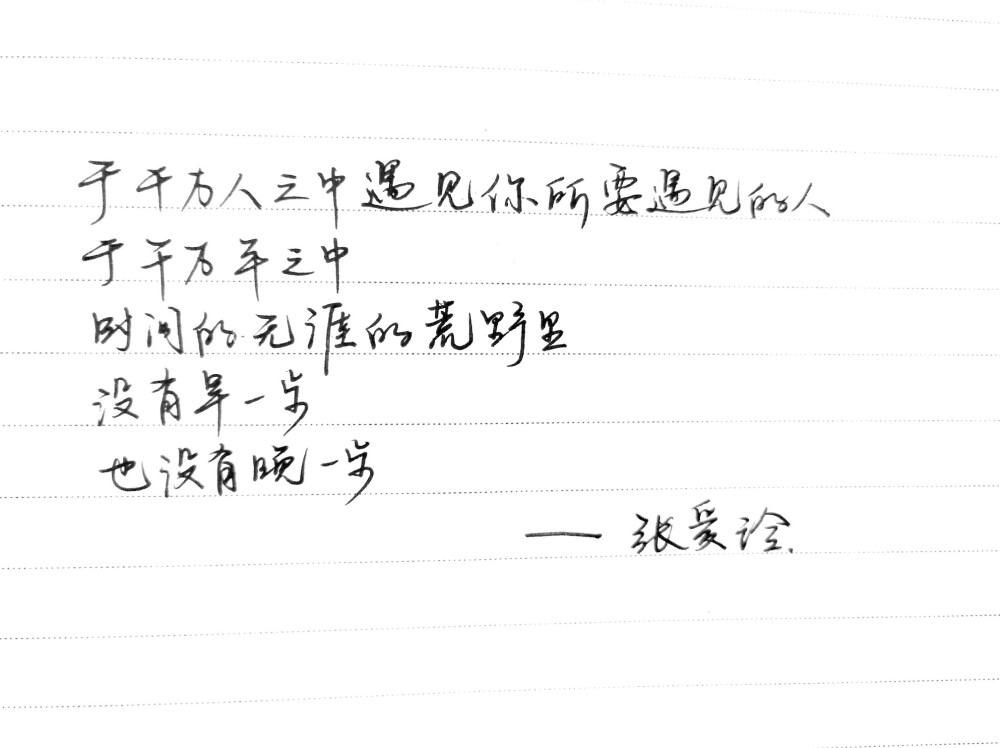 于千万人之中遇见你所要遇见的人
于千万年之中
时间的无涯的荒野里
没有早一步
也没有晚一步
—— 张爱玲.